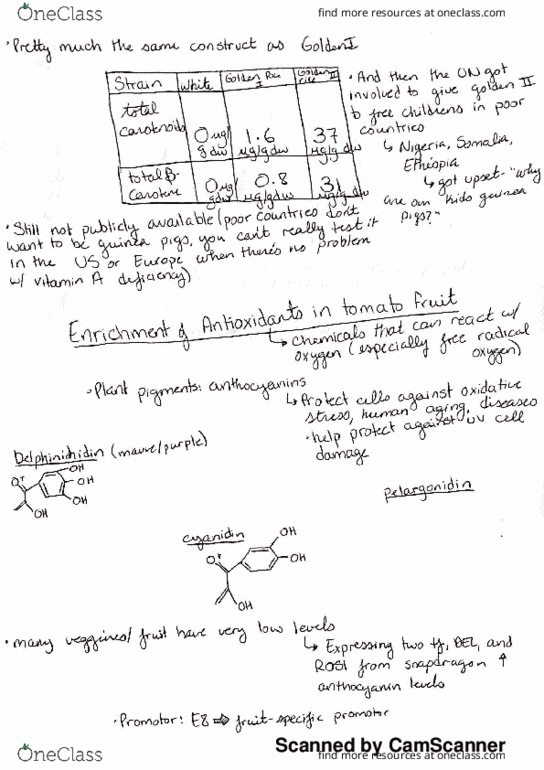 OneClass
find more resources at oneclass.com
• Pretty much the same construct as Golden I
Strain White Golden Rice I Golden rice II
total carotenoids 0 μg/g dw 1.6 μg/g dw 37 μg/g dw
total β-carotene 0 μg/g dw 0.8 μg/g dw 31 μg/g dw
• And then the UN got
involved to give golden II
to free childrens in poor
countries
↳ Nigeria, Somalia,
Ethiopia
↳ got upset - "why
are our kids guinea
pigs?"
• Still not publicly available (poor countries don't
want to be guinea pigs, you can't really test it
in the US or Europe when there's no problem
w/ vitamin A deficiency)
Enrichment of Antioxidants in tomato fruit
↳ chemicals that can react w/
oxygen (especially free radical
oxygen)
• Plant pigments: anthocyanins
↳ Protect cells against oxidative
stress, human aging, diseases
• help protect against UV cell
damage
Delphinidin (mauve/purple)
O+
OH
OH
OH
OH
pelargonidin
cyanidin
O+
OH
OH
OH
• many veggines/fruit have very low levels
↳ Expressing two tf, DEL, and
ROS1 from snapdragon ↑
anthocyanin levels
• Promotor: E8 ⇒ fruit-specific promotor
Scanned by CamScanner
OneClass
find more resources at oneclass.com